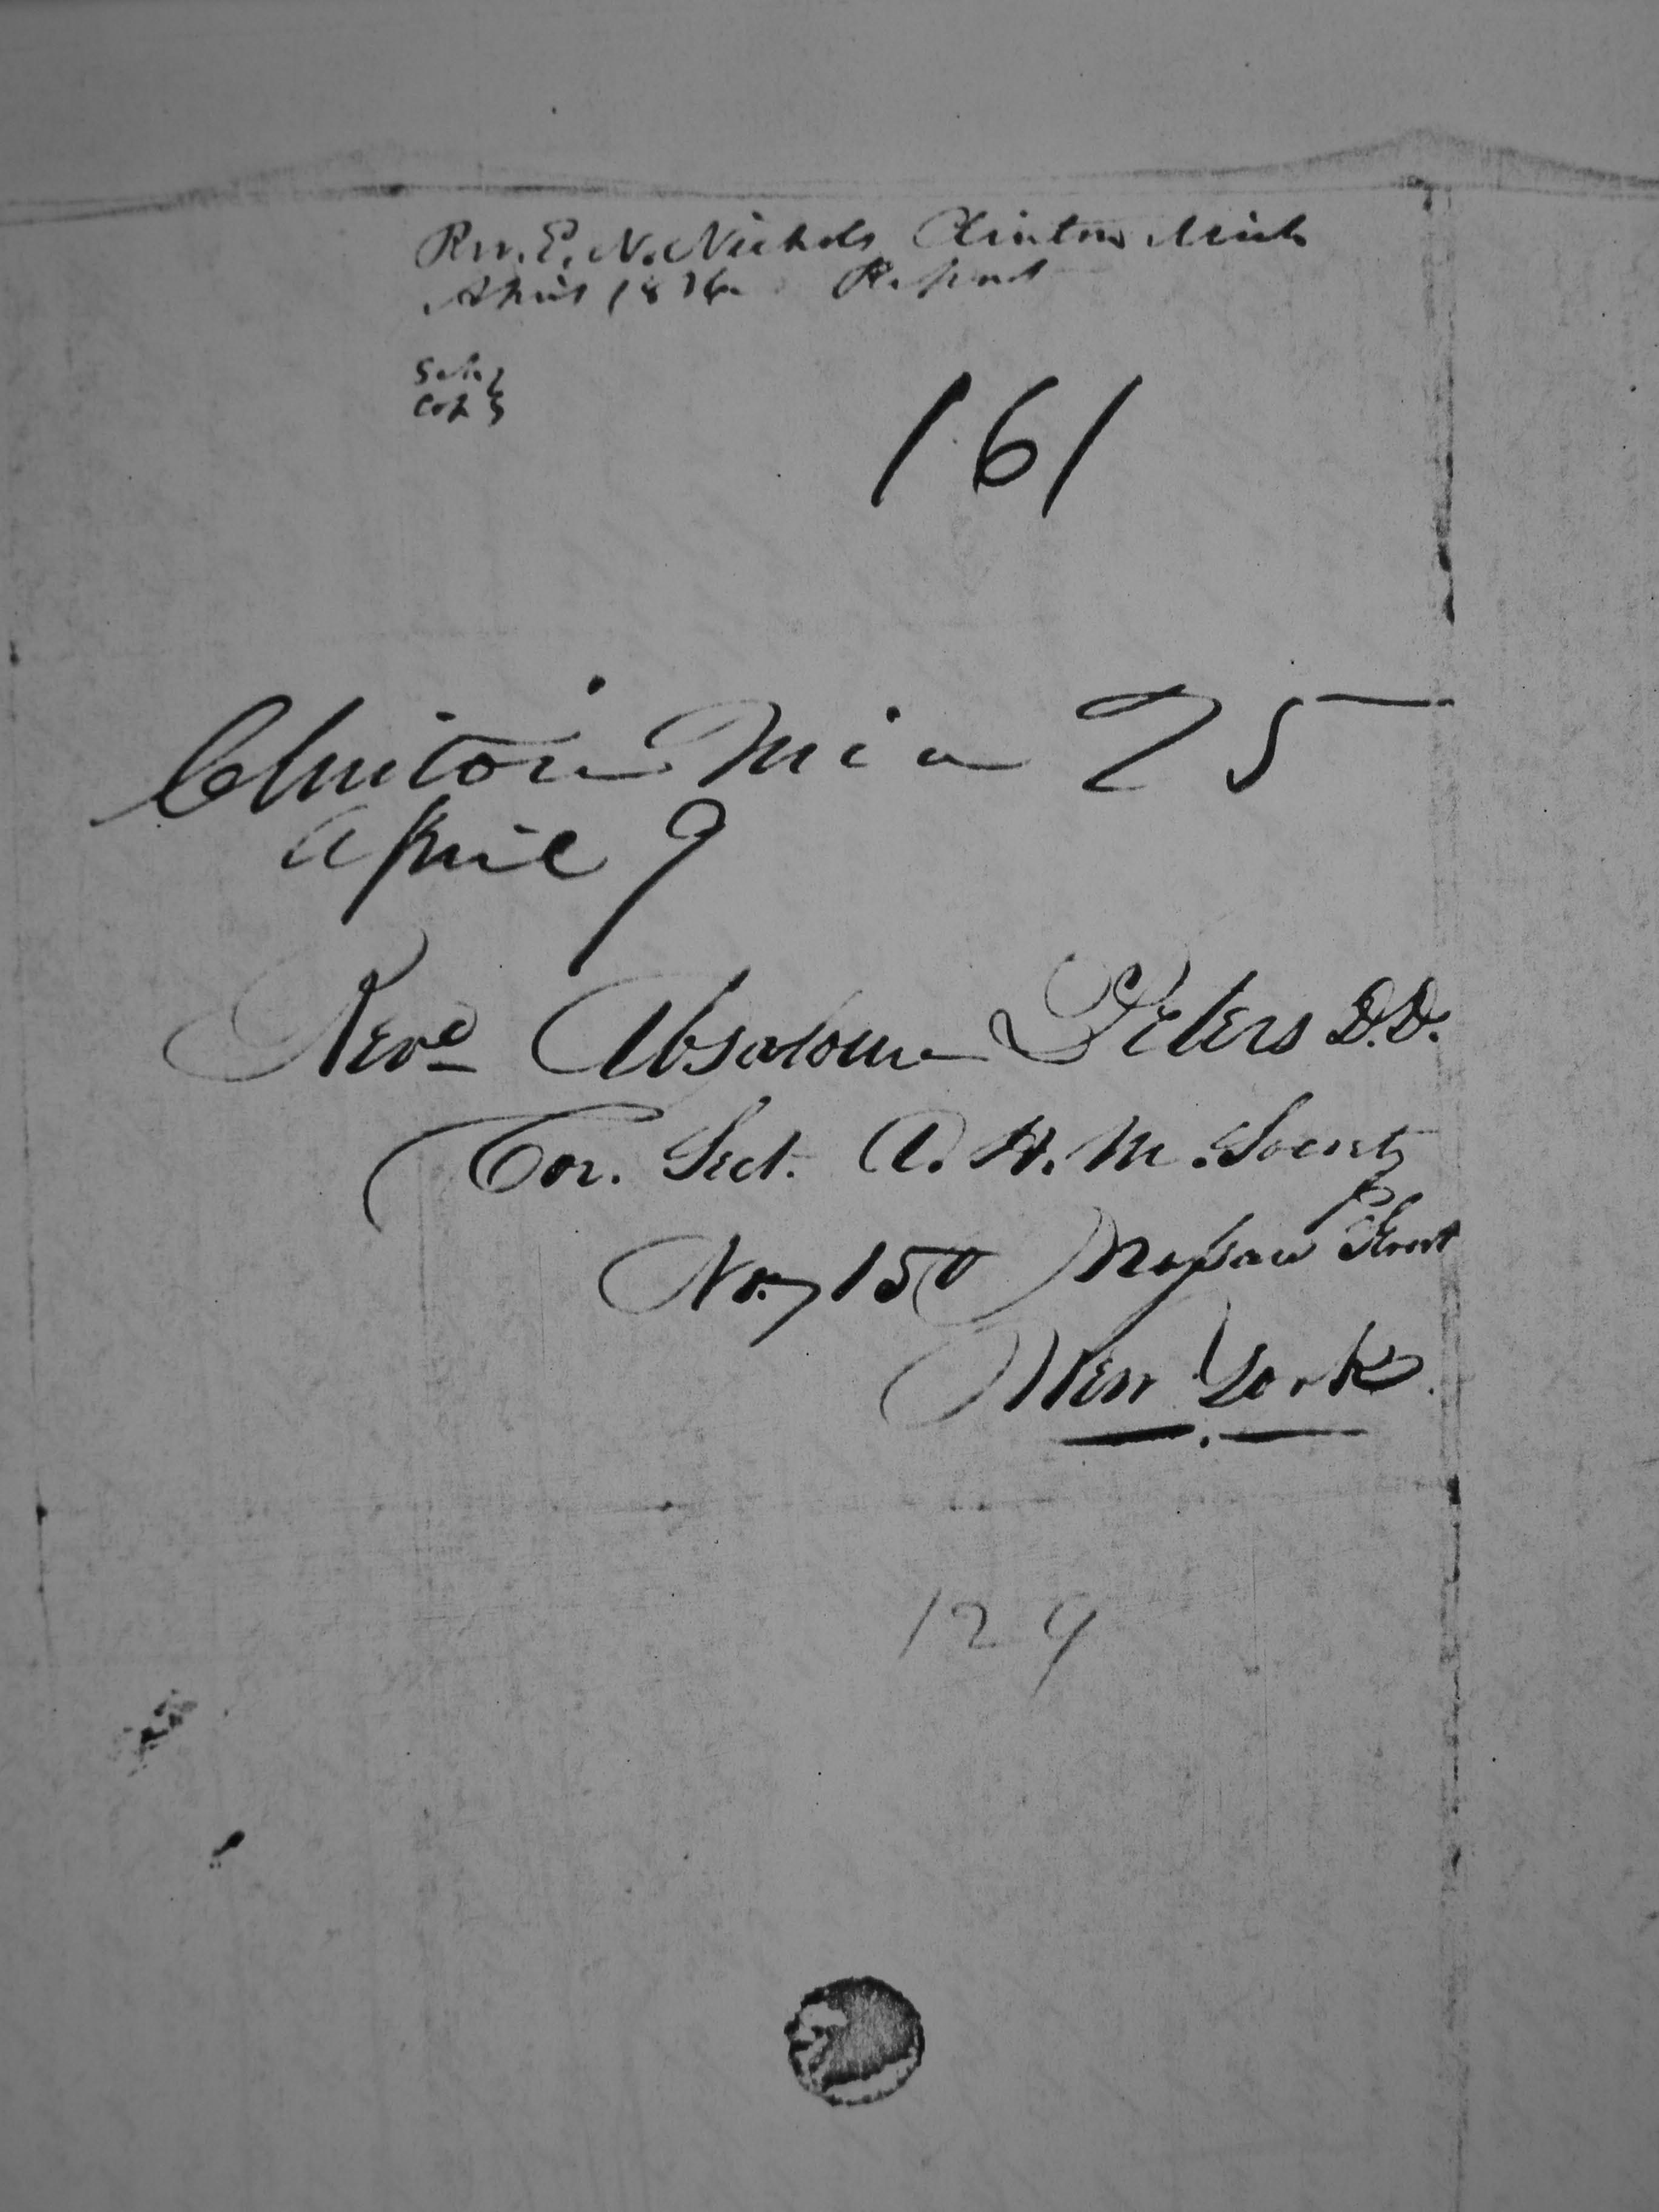 Rev. E. N. Nichols Clinton Mich
April 1836 Report
161
Clinton Mia 25
April 9
Revd Absalom Peters D.D.
Cor. Sect. A. H. M. Society
No. 150 Nassau Street
New York
129